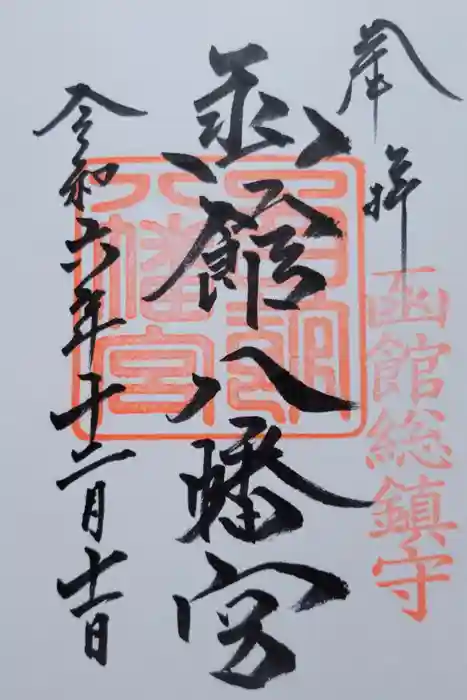 奉拝
函館総鎮守
函館八幡宮
令和六年十二月十一日